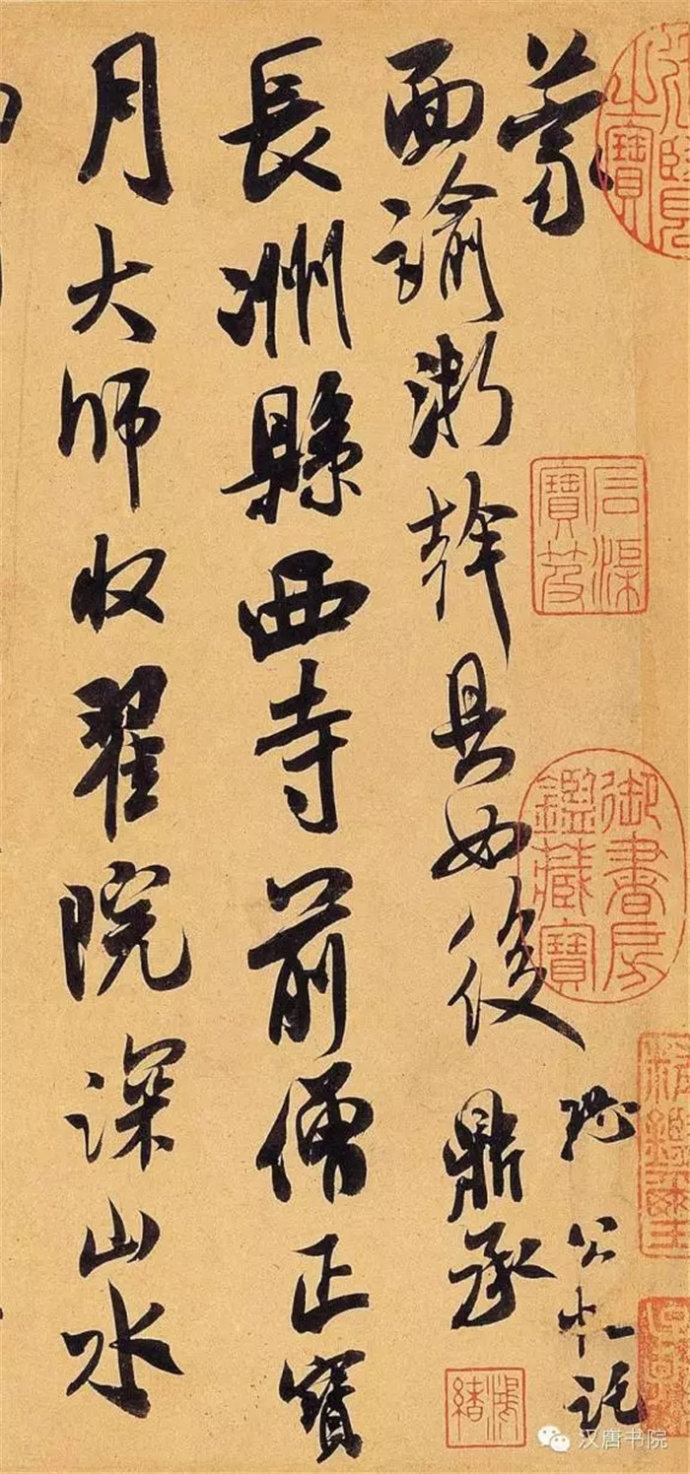 蒙
面諭浙幹具如後 鼎承
長洲縣西寺前僧正寶
月大師收翟院深山水
石渠寶笈
御書房鑑藏寶
汉唐书院